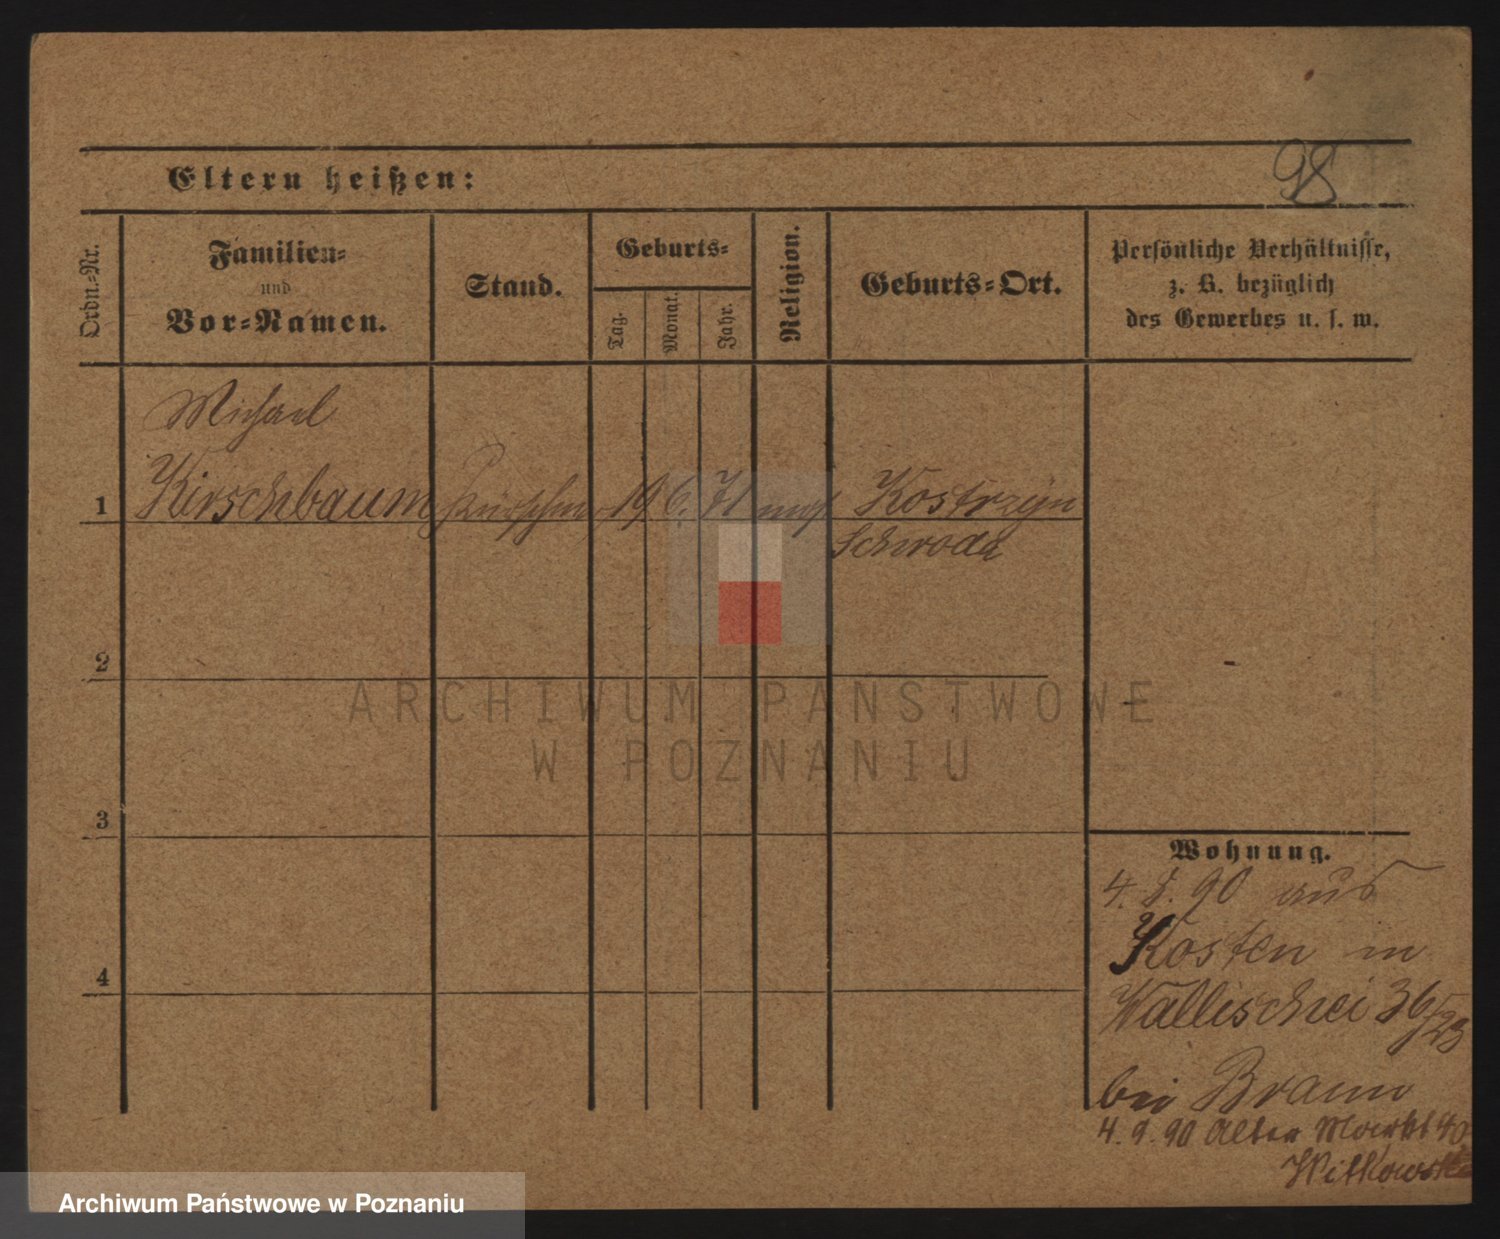 98
Eltern heißen:
Ordn.-Nr.
Familien-
und
Vor-Namen.
Stand.
Geburts-
Tag.
Monat.
Jahr.
Religion.
Geburts-Ort.
Persönliche Verhältnisse,
z. B. bezüglich
des Gewerbes u. s. w.
Michael
1 Kirschbaum Kürschner 19 6. 71 mos Kostrzyn
Schroda
2
3
4
Wohnung.
4. 8. 90 aus
Kosten in
Wallischei 36/23
bei Braun
4. 9. 90 Alter Markt 40
Witkowski
ARCHIWUM PAŃSTWOWE
W POZNANIU
Archiwum Państwowe w Poznaniu